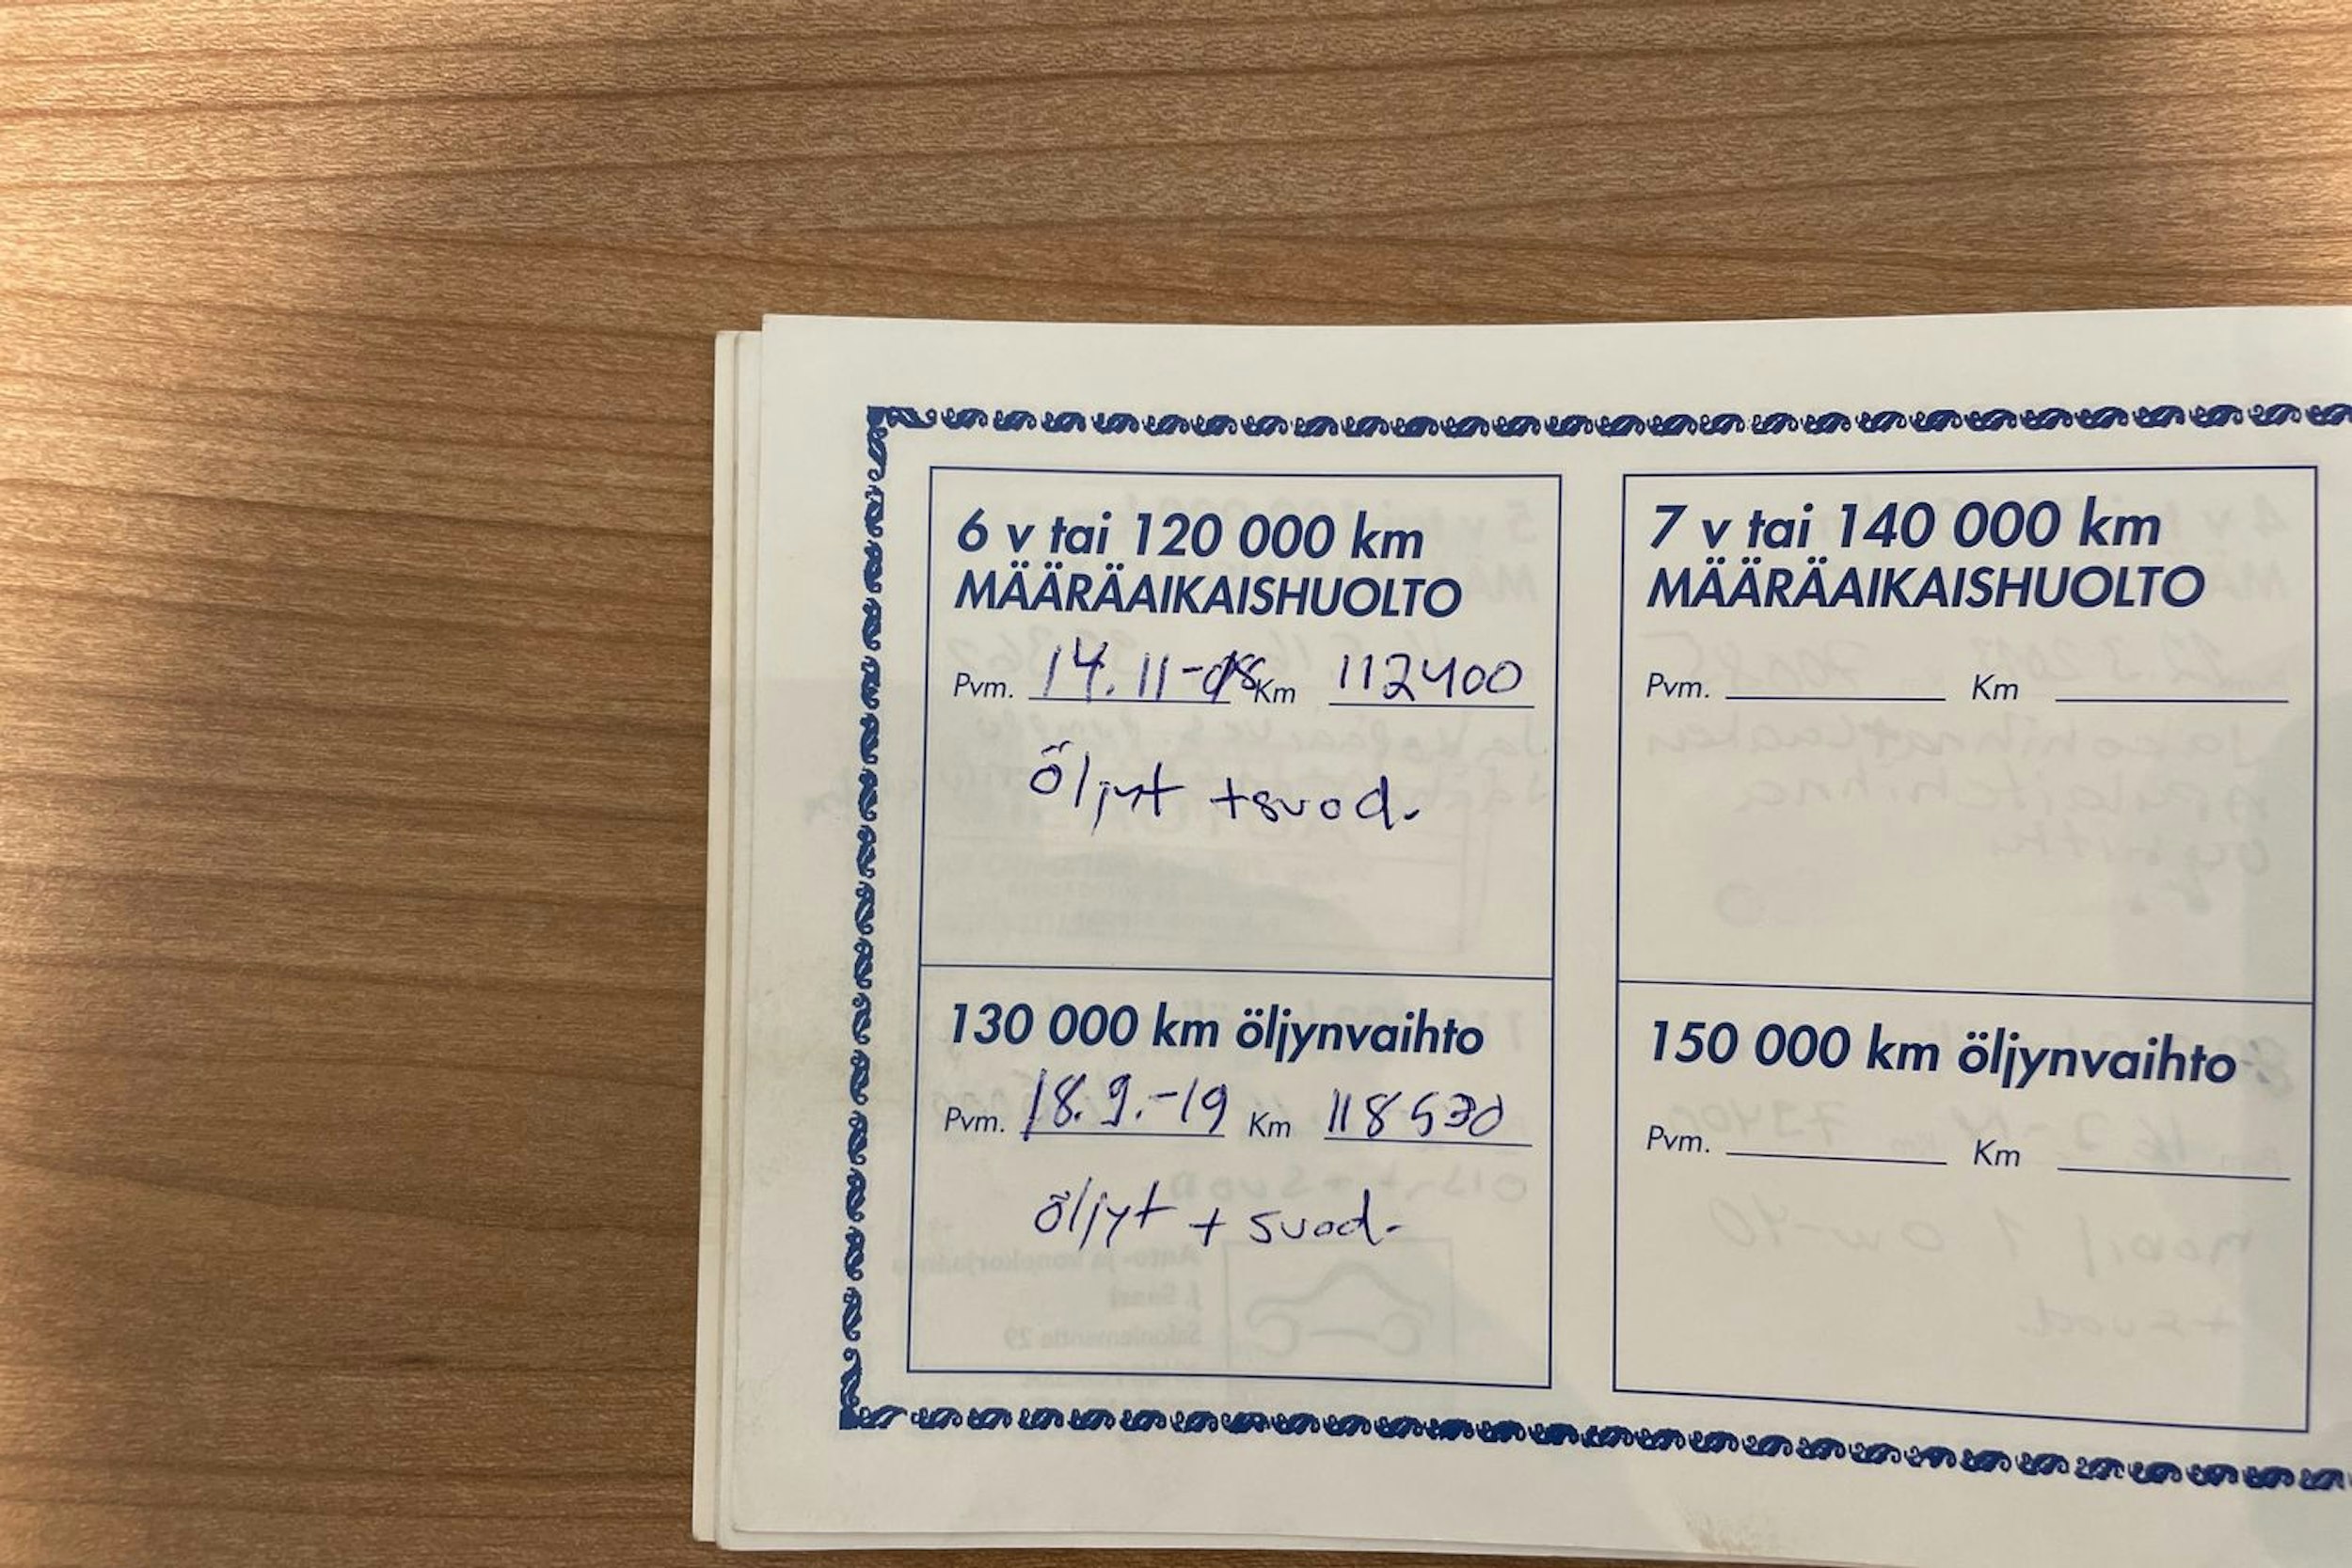 6 v tai 120 000 km
MÄÄRÄAIKAISHUOLTO
Pvm. 14.11-18 Km 112400
Öljyt +suod.
130 000 km öljynvaihto
Pvm. 18.9.-19 Km 118530
öljyt + suod.
7 v tai 140 000 km
MÄÄRÄAIKAISHUOLTO
Pvm. Km
150 000 km öljynvaihto
Pvm. Km